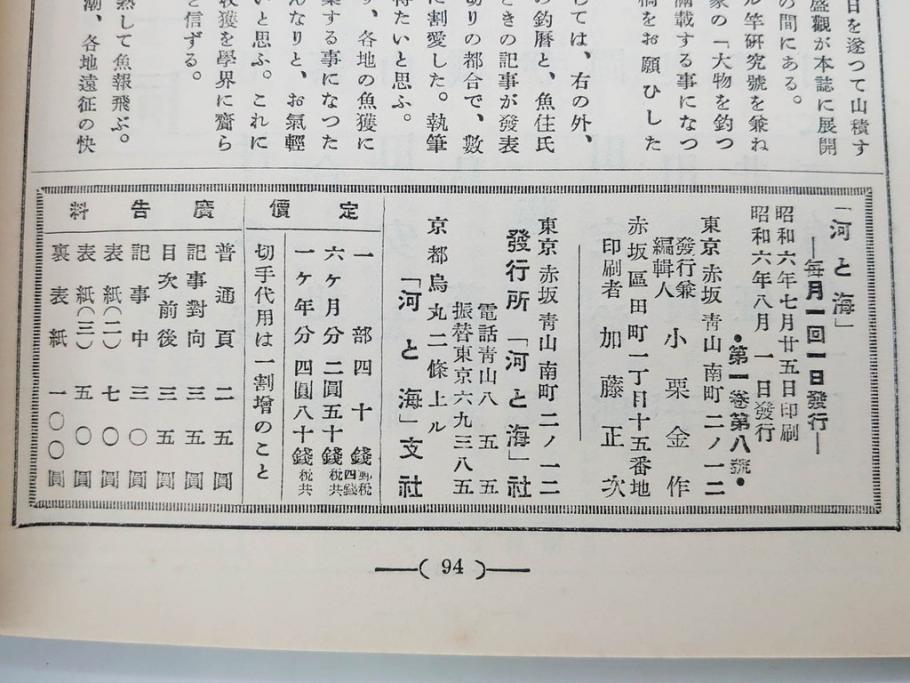 日を遂つて山積す
盛觀が本誌に展開
の間にある。
ル竿研究號を兼ね
家の「大物を釣つ
滿載する事になつ
稿をお願ひした
しては、右の外、
の釣曆と、魚住氏
ときの記事が發表
切りの都合で、數
に割愛した。執筆
得たいと思ふ。
す、各地の魚獲に
集する事になつた
んなりと、お氣輕
いと思ふ。これに
收獲を學界に齎ら
と信ずる。
熟して魚報飛ぶ。
潮、各地遠征の快
「河と海」
―每月一回一日發行―
昭和六年七月廿五日印刷
昭和六年八月 一 日發行
•第一卷第八號•
東京 赤坂 靑山 南町 二ノ一二
發行兼編輯人 小栗金作
赤坂區田町一丁目十五番地
印刷者 加藤正次
東京 赤坂 靑山 南町 二ノ一二
發行所「河と海」社
電話靑山八五五
振替東京六九三八五
京都烏丸二條上ル
「河と海」支社
定價
一部四十錢 郵稅四錢
六ヶ月分 二圓五十錢 稅共
一ヶ年分 四圓八十錢 稅共
切手代用は一割增のこと
廣告料
普通頁 二五圓
記事對向 三五圓
目次前後 三五圓
記事中 三〇圓
表紙(二) 七〇圓
表紙(三) 五〇圓
裏表紙 一〇〇圓
―( 94 )―